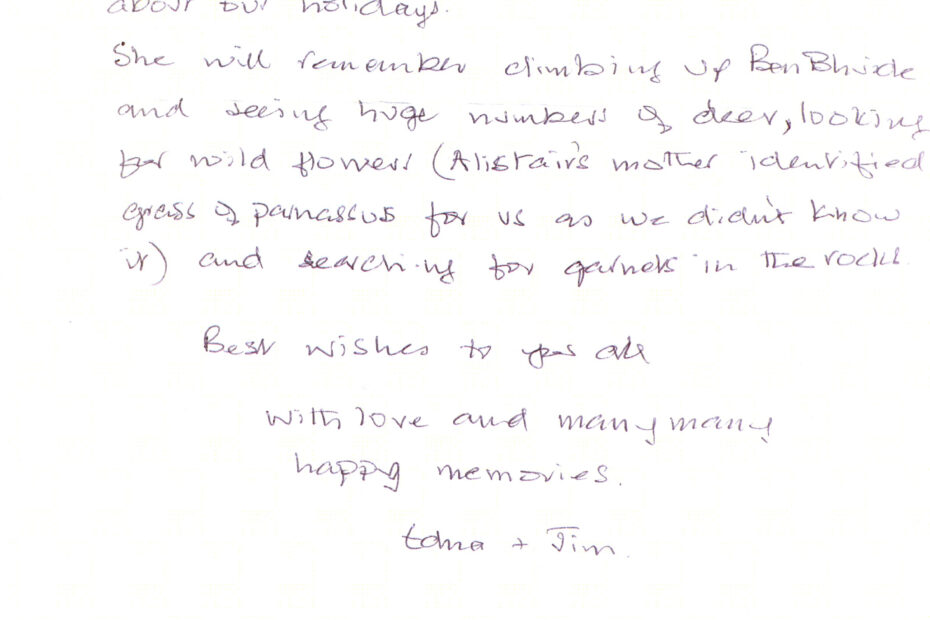 about our holidays.
She will remember climbing up Ben Bhuide
and seeing huge numbers of deer, looking
for wild flowers (Alistair's mother identified
grass of parnassus for us as we didn't know
it) and searching for garnets in the rocks.
Best wishes to you all
with love and many many
happy memories.
Edna + Jim.